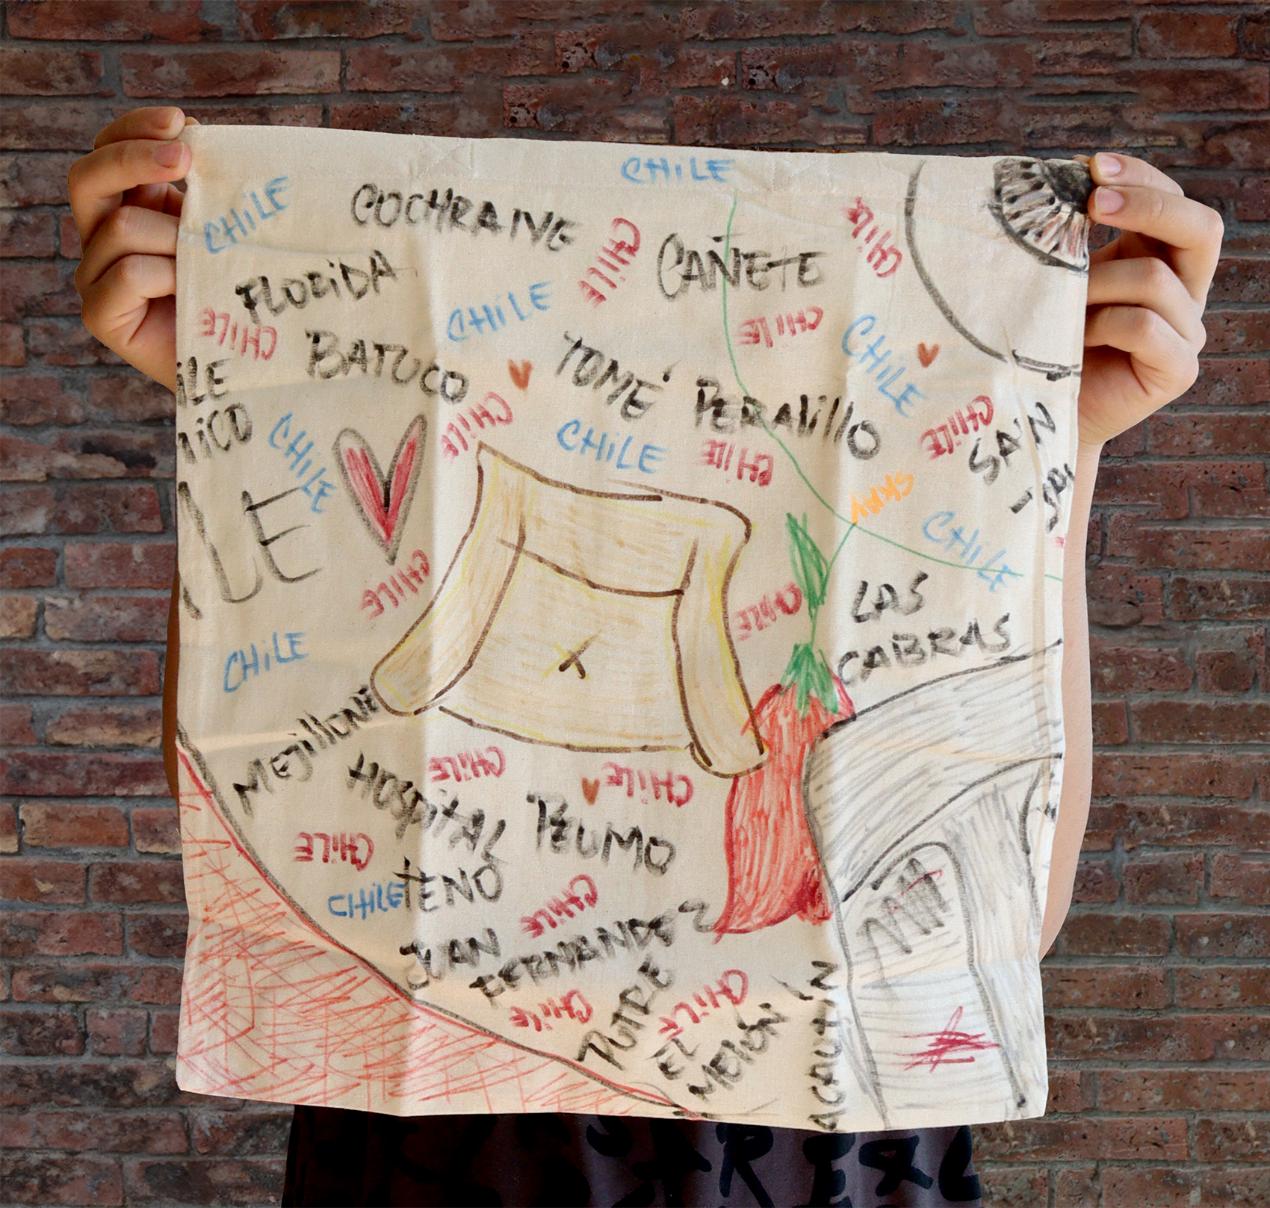 CHILE
CHILE
COCHRAINE
CHILE
CHILE
CAÑETE
FLORIDA
CHILE
CHILE
CHILE
CHILE
BATUCO
TOMÉ
PERALILLO
ILE
CHILE
CHILE
CHILE
CHILE
CHILE
SAN
CHILE
LE
CHILE
CHILE
CHILE
LAS
CABRAS
CHILE
Mejillone
HOSPITAL
CHILE
CHILE
PEUMO
CHILE
CHILE
TENO
CHILE
JUAN
FERNANDEZ
CHILE
PUTRE
CHILE
EL
MELÓN